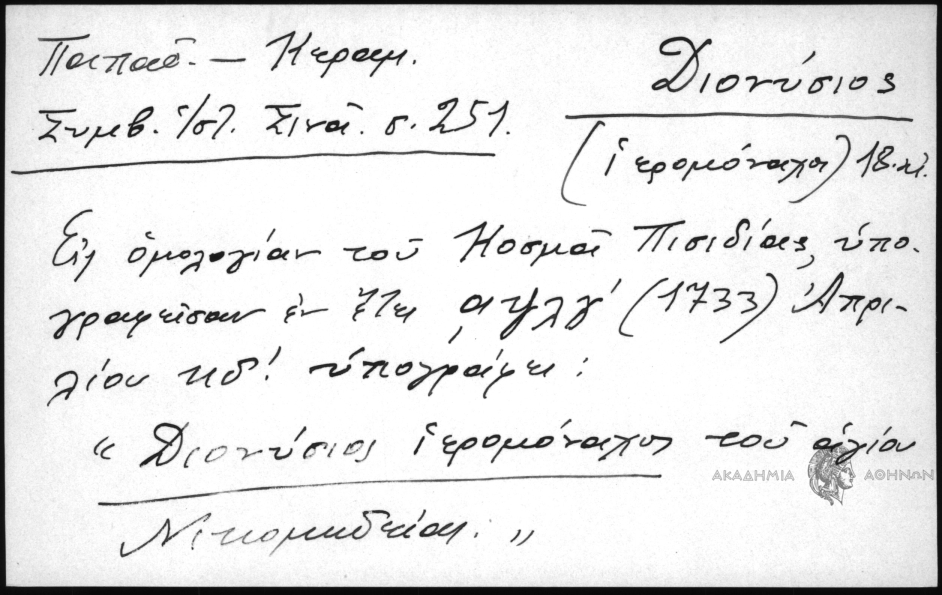 Παπαδ. — Κεραμ.
Συμβ. ἱστ. Σινᾶ. σ. 251.
Διονύσιος
(ἱερομόναχος) 18. αἰ.
Εἰς ὁμολογίαν τοῦ Κοσμᾶ Πισιδίας, ὑπο-
γραφεῖσαν ἐν ἔτει ͵αψλγʹ (1733) Ἀπρι-
λίου κδʹ. ὑπογράφει :
« Διονύσιος ἱερομόναχος τοῦ ἁγίου
Νικομηδείας. »
ΑΚΑΔΗΜΙΑ ΑΘΗΝΩΝ